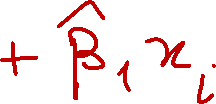 + β̂₁xᵢ